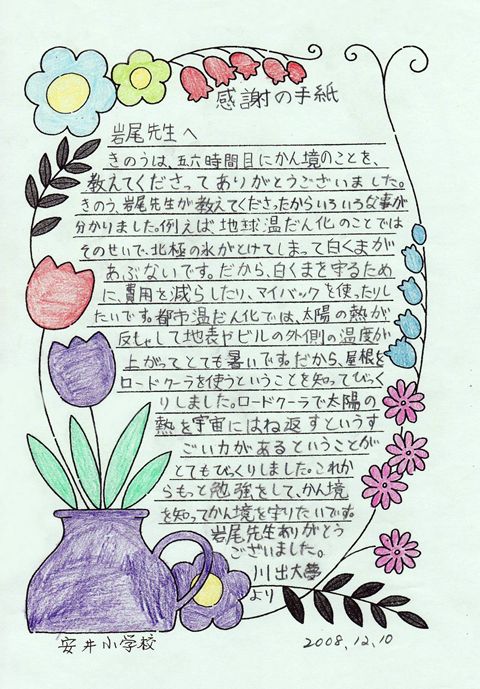 感謝の手紙
岩尾先生へ
きのうは、五六時間目にかん境のことを、
教えてくださってありがとうございました。
きのう、岩尾先生が教えてくださったからいろいろな事が
分かりました。例えば地球温だん化のことでは
そのせいで、北極の氷がとけてしまって白くまが
あぶないです。だから、白くまを守るため
に、費用を減らしたり、マイバックを使ったりし
たいです。都市温だん化では、太陽の熱が
反しゃして地表やビルの外側の温度が
上がってとても暑いです。だから、屋根を
ロードクーラを使うということを知ってびっく
りしました。ロードクーラで太陽の
熱を宇宙にはね返すというす
ごい力があるということが
とてもびっくりしました。これか
らもっと勉強をして、かん境
を知ってかん境を守りたいです。
岩尾先生ありがとう
ございました。
川出大夢
より
安井小学校
2008.12.10